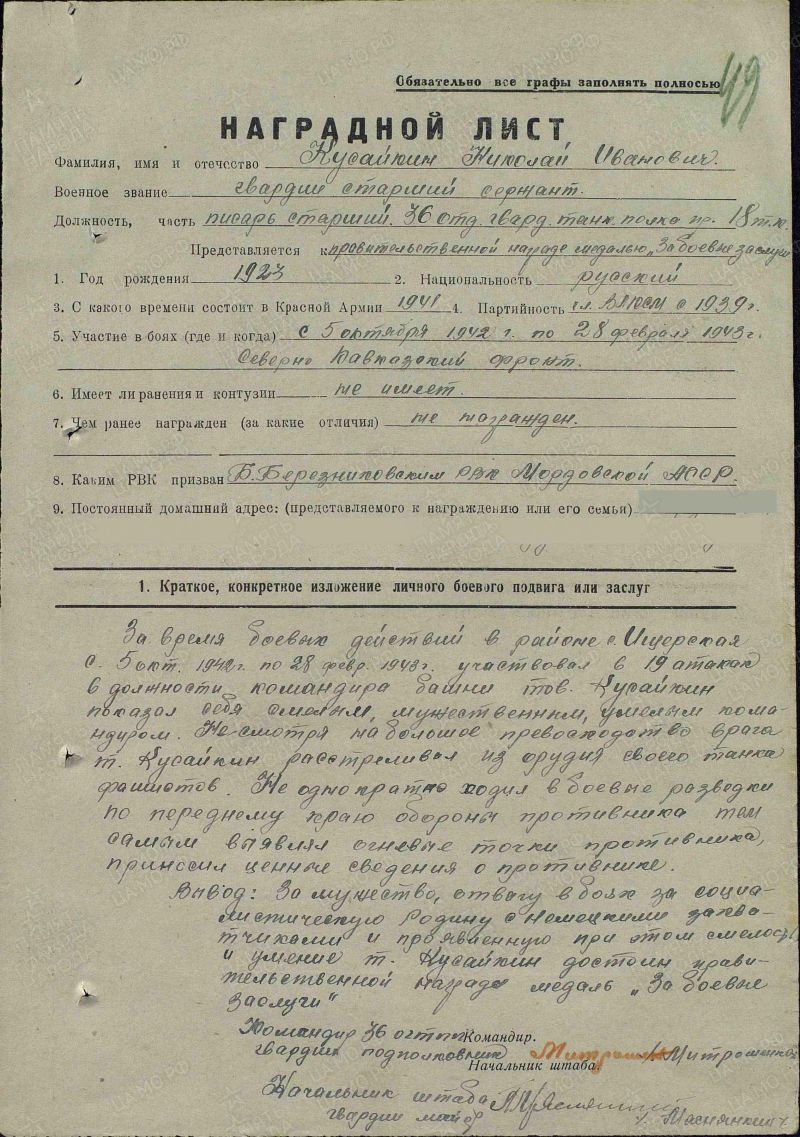 49
Обязательно все графы заполнять полносью
НАГРАДНОЙ ЛИСТ
Фамилия, имя и отчество Кусайкин Николай Иванович.
Военное звание гвардии старший сержант.
Должность, часть писарь старший. 36 отд. гвард. танк. полка пр. 18 т.к.
Представляется к правительственной награде медалью „За боевые заслуги
1. Год рождения 1923 2. Национальность русский
3. С какого времени состоит в Красной Армии 1941 4. Партийность чл. ВЛКСМ с 1939 г.
5. Участие в боях (где и когда) с 5 октября 1942 г. по 28 февраля 1943 г.
Северно Кавказский фронт.
6. Имеет ли ранения и контузии не имеет.
7. Чем ранее награжден (за какие отличия) не награжден.
8. Каким РВК призван Б. Березниковским РВК Мордовской АССР.
9. Постоянный домашний адрес: (представляемого к награждению или его семьи)
1. Краткое, конкретное изложение личного боевого подвига или заслуг
За время боевых действий в районе с. Ищерская
с. 5 окт. 1942 г. по 28 февр. 1943 г. участвовал в 19 атаках
в должности командира башни тов. Кусайкин
показал себя смелым, мужественным, умелым кома-
ндиром. Не смотря на большое превосходство врага
т. Кусайкин расстреливал из орудия своего танка
фашистов. Не однократно ходил в боевые разведки
по переднему краю обороны противника тем
самым выявлял огневые точки противника,
приносил ценные сведения о противнике.
Вывод: За мужество, отвагу в боях за социа-
листическую Родину с немецкими захва-
тчиками и проявленную при этом смелость
и умение т. Кусайкин достоин прави-
тельственной награде медаль „За боевые
заслуги"
Командир 36 огтп Командир.
гвардии подполковник /Митрошенков
Начальник штаба.
Начальник штаба
гвардии майор /Маснянкин/